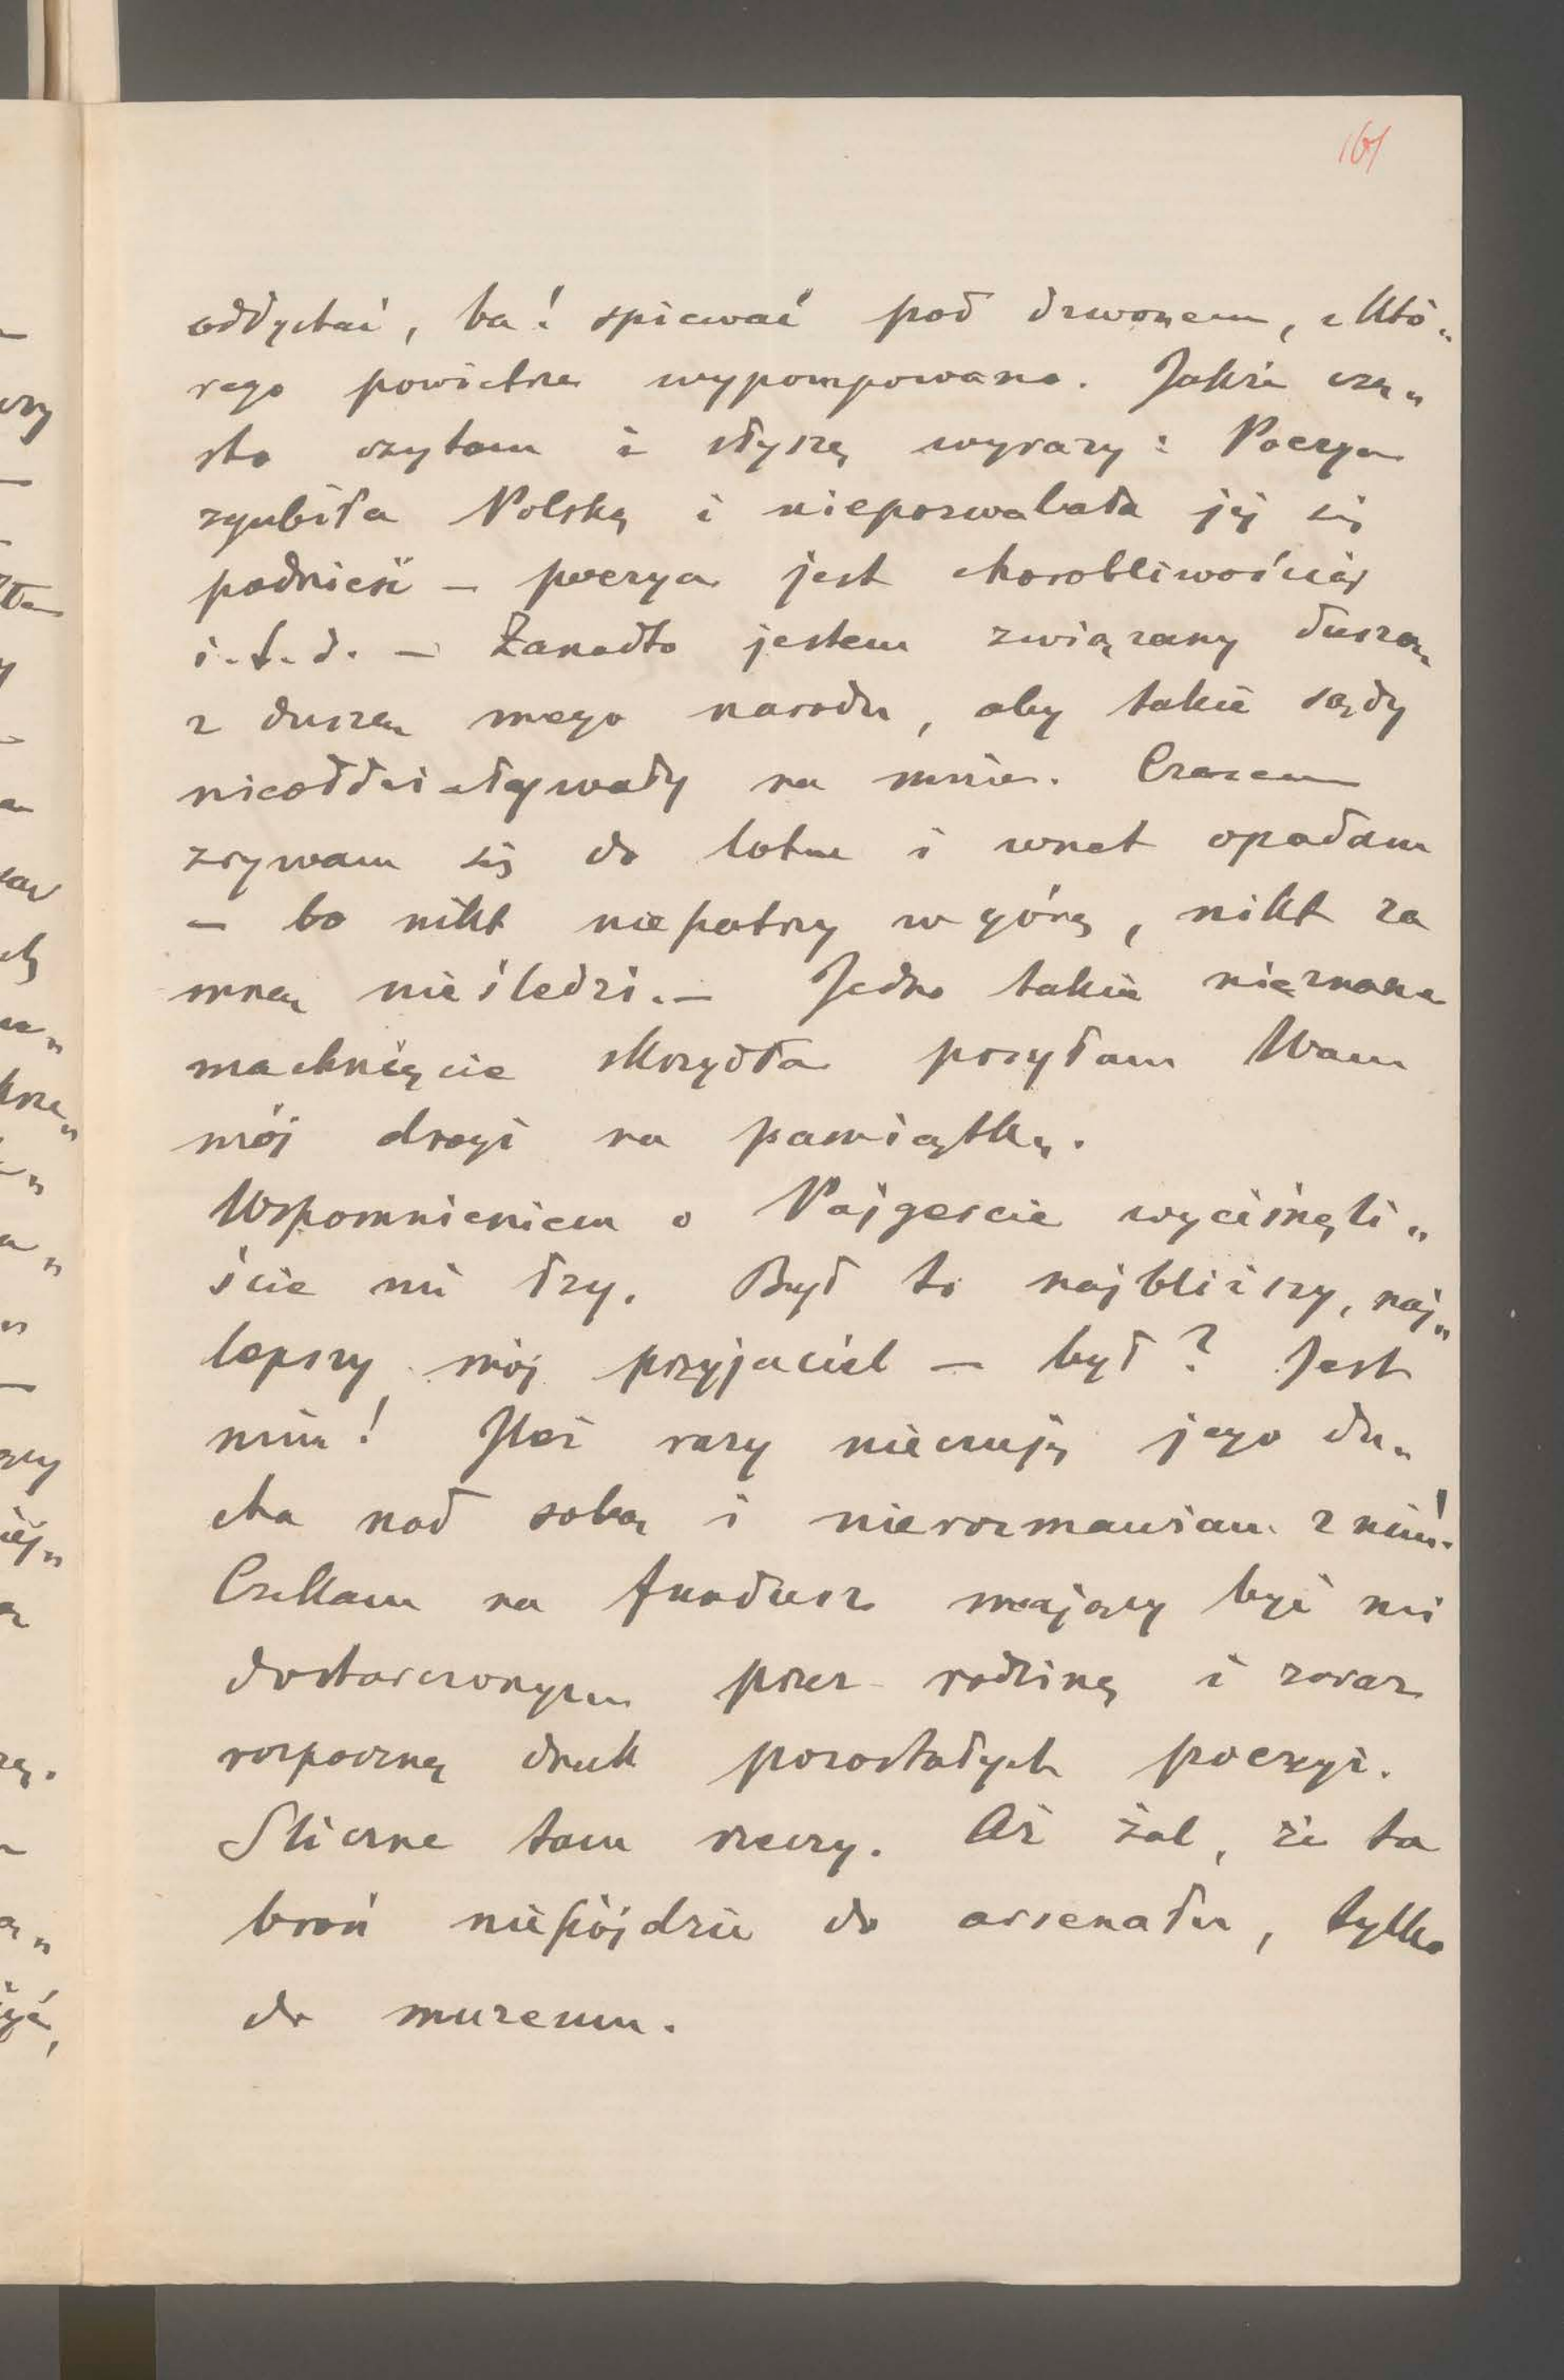 161
oddychać, ba! śpiewać pod dzwonem, z któ„
rego powietrze wypompowano. Jakże czę„
sto czytam i słyszę wyrazy: Poezya
zgubiła Polskę i niepozwalała jéj się
podnieść – poezya jest chorobliwością
i.t.d. – Zanadto jestem związany duszą
z duszą mego narodu, aby takie sądy
nieoddziaływały na mnie. Czasem
zrywam się do lotu i wnet opadam
– bo nikt niepatrzy w górę, nikt za
mną nieśledzi. – Jedno takie nieznane
machnięcie skrzydła posyłam Wam
mój drogi na pamiątkę.
Wspomnieniem o Pajgercie wycisnęli„
ście mi łzy. Był to najbliższy, naj„
lepszy mój przyjaciel – był? Jest
nim! Ileż razy nieczuję jego du„
cha nad sobą i nierozmawiam z nim!
Czekam na fundusz mający być mi
dostarczonym przez rodzinę i zaraz
rozpocznę druk pozostałych poezyi.
Śliczne tam rzeczy. Aż żal, że ta
broń niepójdzie do arsenału, tylko
do muzeum.